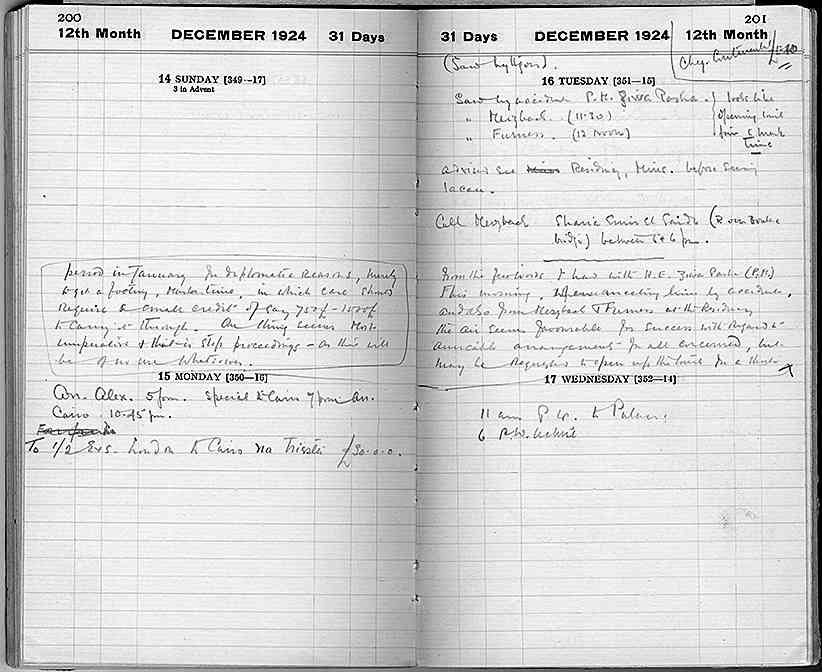 200
12th Month DECEMBER 1924 31 Days
14 SUNDAY [349—17]
3 in Advent
period in January for diplomatic reasons, merely
to get a footing, & marks time, in which case should
require a small credit of say 750£ - 1000£
to carry it through. One thing seems most
imperative & that is stop proceedings - as this will
be of no use whatsoever.
15 MONDAY [350—16]
Arr. Alex. 5 pm. Special to Cairo 7 pm arr.
Cairo 10.45 pm.
To 1/2 Exs. London to Cairo via Trieste £30.0.0.
201
31 Days DECEMBER 1924 12th Month
(Saw Lythgoe).
16 TUESDAY [351—15]
Saw by accident P.M. Ziwa Pasha.
" Merzbach. (11.30)
" Furness. (12 noon)
looks like
opening until
time
advises see Residency, Mins. before seeing
Lacau.
Call Merzbach Sharia Emir el Said
bridge) between 5 & 6 pm.
from the few words I had with H.E. Ziwa Pasha (P.M.)
This morning, meeting him by accident,
and also from Merzbach & Furness at the Residency
the air seems favourable for success with regard to
amicable arrangements for all concerned, but
may be requested to open up the tomb for a short
17 WEDNESDAY [352—14]
11 am P.W. to Palace
6 P.W.